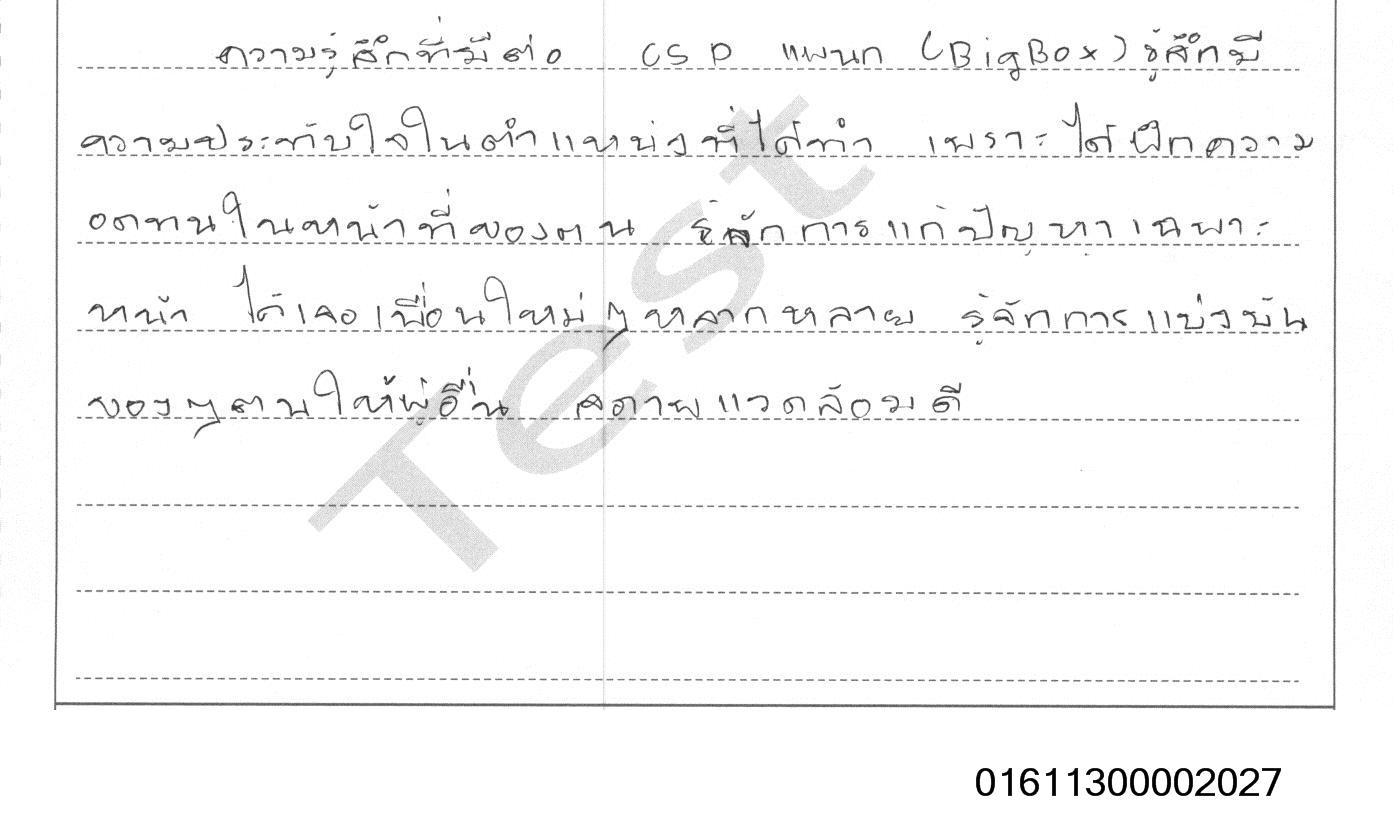 ความรู้สึกที่มีต่อ CSP แผนก (BigBox) รู้สึกมี
ความประทับใจในตำแหน่งที่ได้ทำ เพราะได้ฝึกความ
อดทนในหน้าที่ของตน รู้จักการแก้ปัญหาเฉพาะ
หน้า ได้เจอเพื่อนใหม่ๆหลากหลาย รู้จักการแบ่งปัน
ของๆตนให้ผู้อื่น สภาพแวดล้อมดี
Test
01611300002027